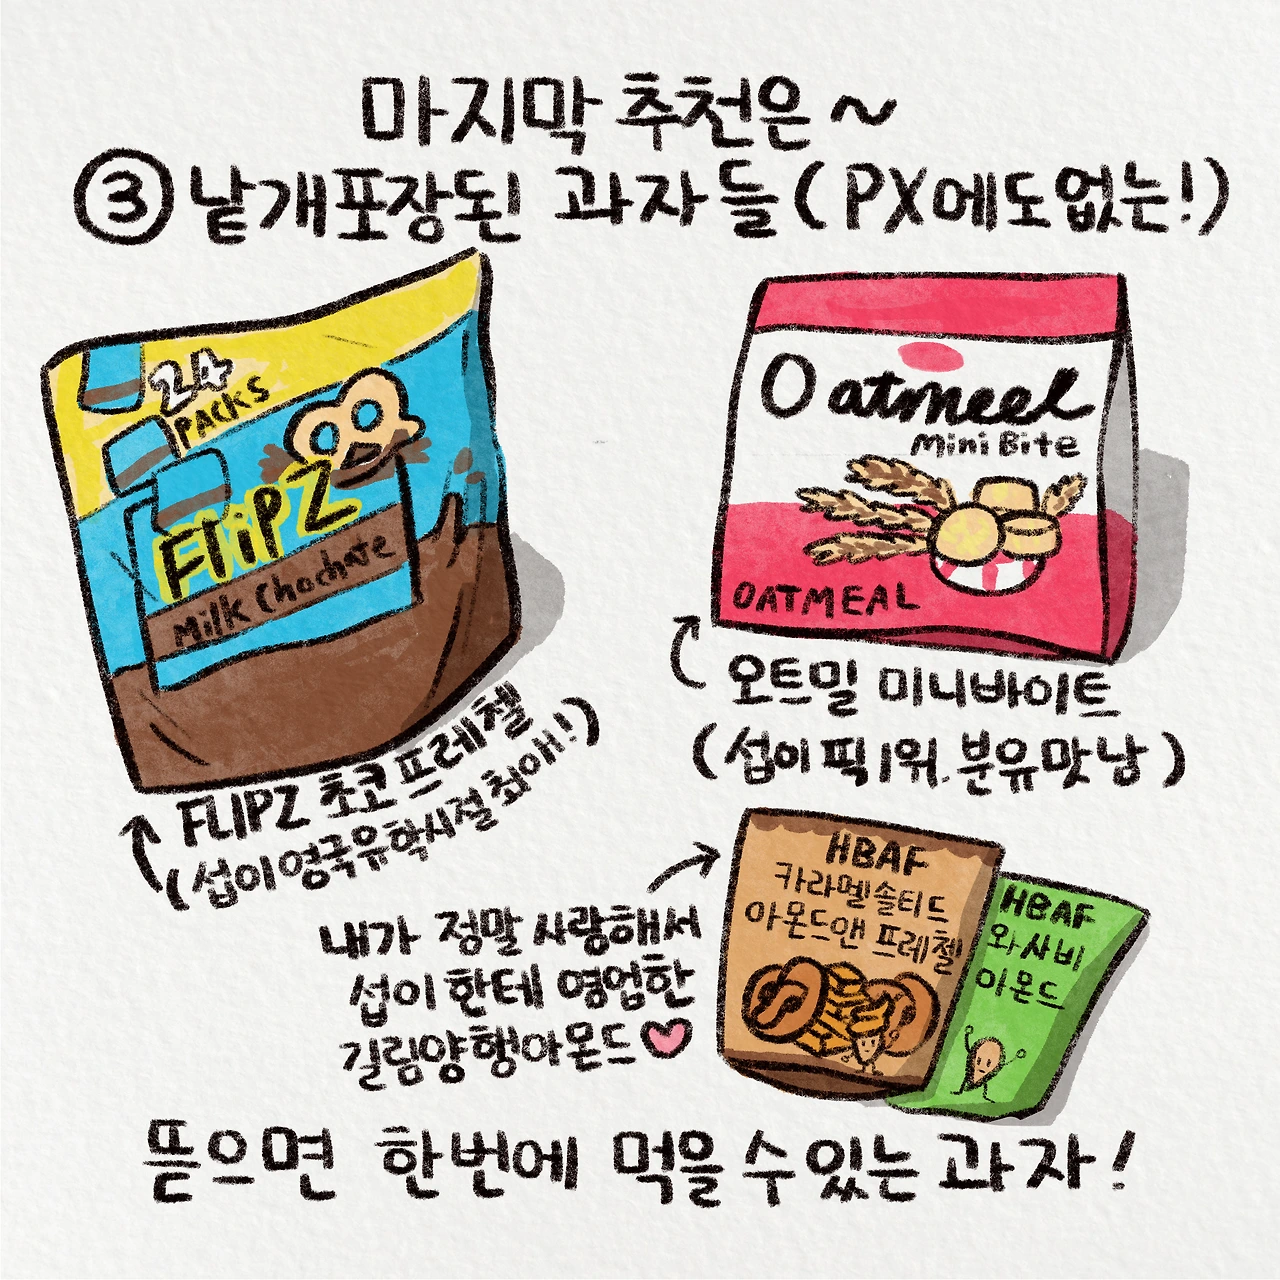 마지막 추천은~
③ 낱개포장된 과자들 (PX에도없는!)
24
PACKS
FLIPZ
Milk Chochate
FLIPZ 초코 프레첼
(섭이영국유학시절 최애!)
Oatmeel
Mini Bite
OATMEAL
오트밀 미니바이트
(섭이 픽 1위. 분유맛 남)
HBAF
카라멜솔티드
아몬드앤 프레첼
HBAF
와사비
아몬드
내가 정말 사랑해서
섭이 한테 영업한
길림양행아몬드
뜯으면 한번에 먹을수있는 과자!